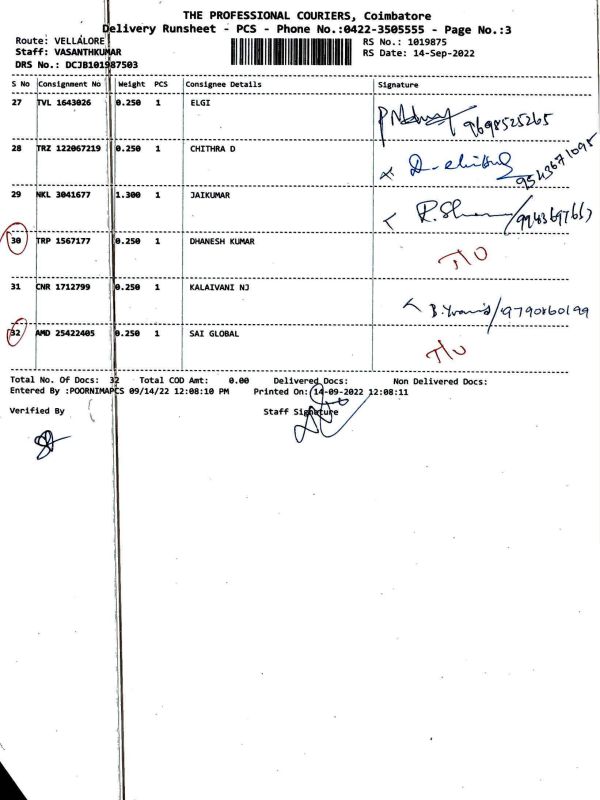 THE PROFESSIONAL COURIERS, Coimbatore
Delivery Runsheet - PCS - Phone No.:0422-3505555 - Page No.:3
Route: VELLALORE RS No.: 1019875
Staff: VASANTHKUMAR RS Date: 14-Sep-2022
DRS No.: DCJB101987503
S No Consignment No Weight PCS Consignee Details Signature
27 TVL 1643026 0.250 1 ELGI 9698525265
28 TRZ 122067219 0.250 1 CHITHRA D 9543671095
29 NKL 3041677 1.300 1 JAIKUMAR
30 TRP 1567177 0.250 1 DHANESH KUMAR T/O
31 CNR 1712799 0.250 1 KALAIVANI NJ 9790860199
32 AMD 25422405 0.250 1 SAI GLOBAL T/O
Total No. Of Docs: 32 Total COD Amt: 0.00 Delivered Docs: Non Delivered Docs:
Entered By :POORNIMAPCS 09/14/22 12:08:10 PM Printed On: 14-09-2022 12:08:11
Verified By Staff Signature